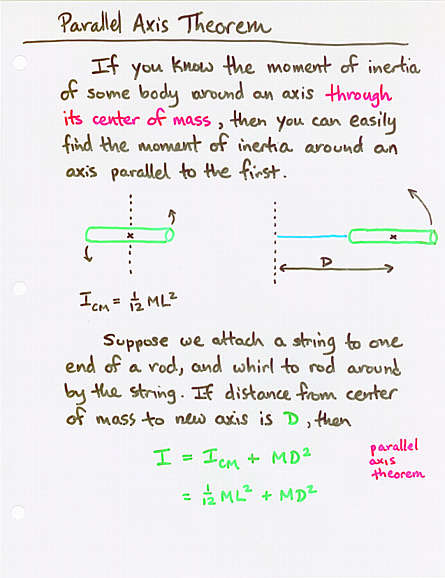 Parallel Axis Theorem
If you know the moment of inertia
of some body around an axis through
its center of mass, then you can easily
find the moment of inertia around an
axis parallel to the first.
x
x
D
I_CM = 1/12 ML²
Suppose we attach a string to one
end of a rod, and whirl to rod around
by the string. If distance from center
of mass to new axis is D, then
I = I_CM + MD²
= 1/12 ML² + MD²
parallel
axis
theorem